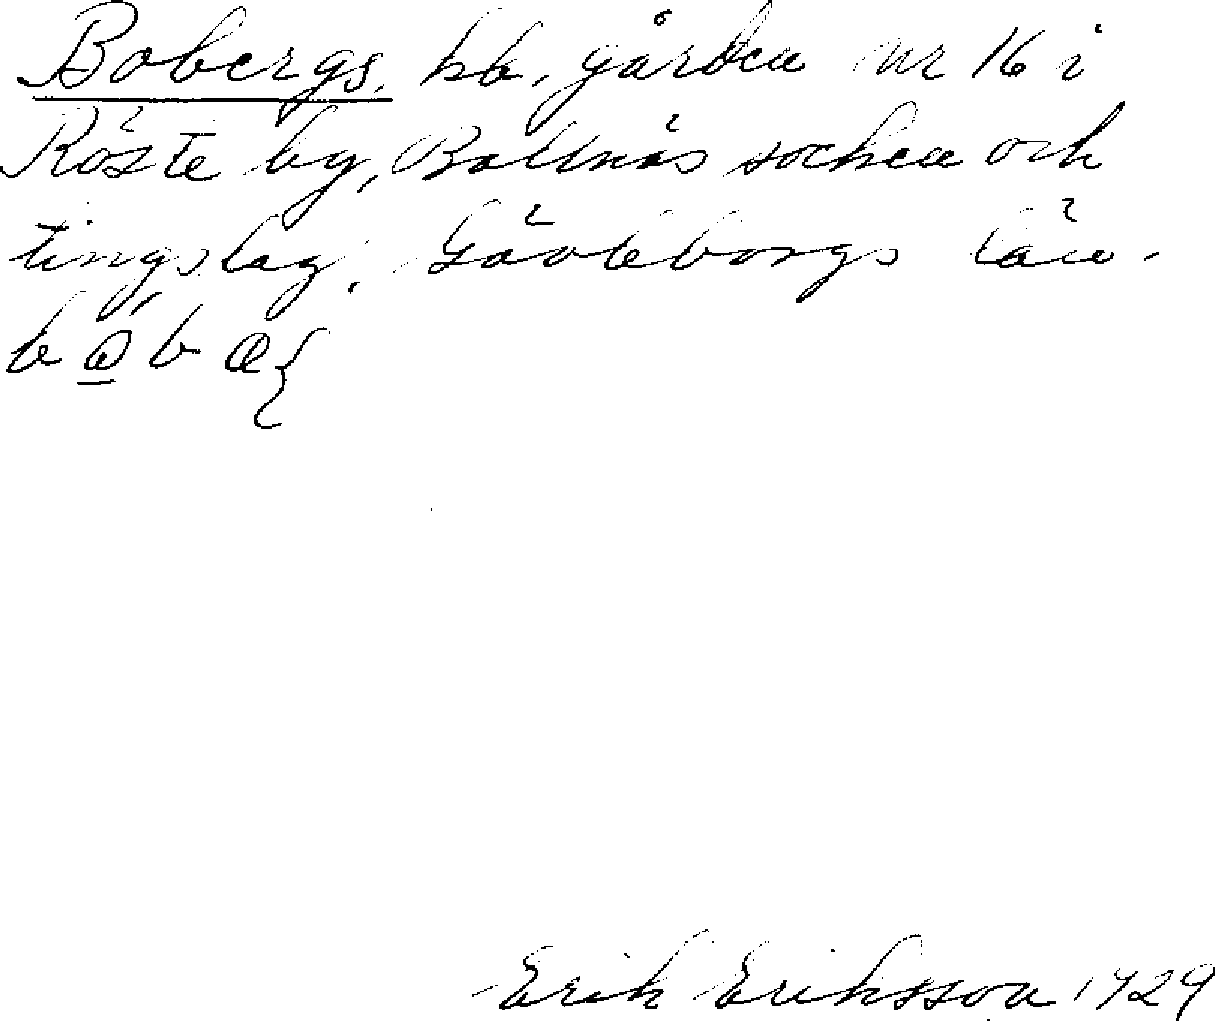 Bobergs, bb. gården nr 16 i
Röste by, Bollnäs socken och
tingslag, Gävleborgs län.
Erik Eriksson 1929